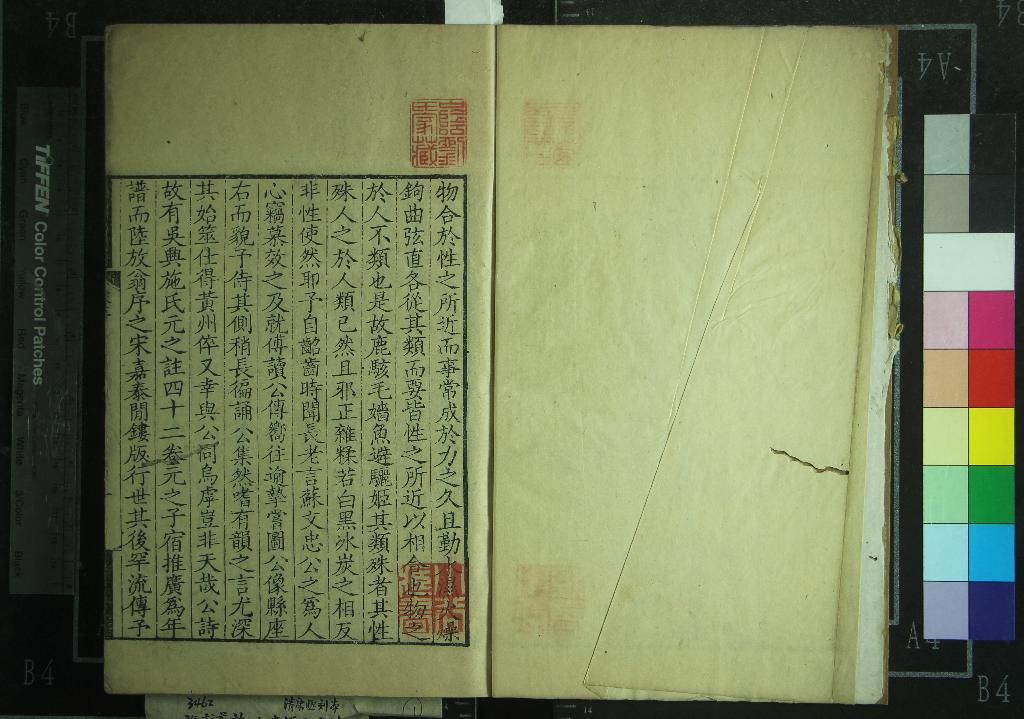 物合於性之所近而事常成於力之久且勤火燥
鉤曲弦直各從其類而要皆性之所近以相合也物之
於人不類也是故鹿駭毛嬙魚避驪姬其類殊者其性
殊人之於人類已然且邪正雜糅若白黑冰炭之相反
非性使然耶予自齠齒時聞長老言蘇文忠公之為人
心竊慕效之及就傅讀公傳嚮往逾摯嘗圖公像縣座
右而貌予侍其側稍長徧誦公集然嗜有韻之言尤深
其始筮仕得黃州倅又幸與公同烏虖豈非天哉公詩
故有吳興施氏元之註四十二卷元之子宿推廣為年
譜而陸放翁序之宋嘉泰閒鏤版行世其後罕流傳予
TIFFEN Color Control Patches
B4
A4
B4
A4
B4
B4
3462